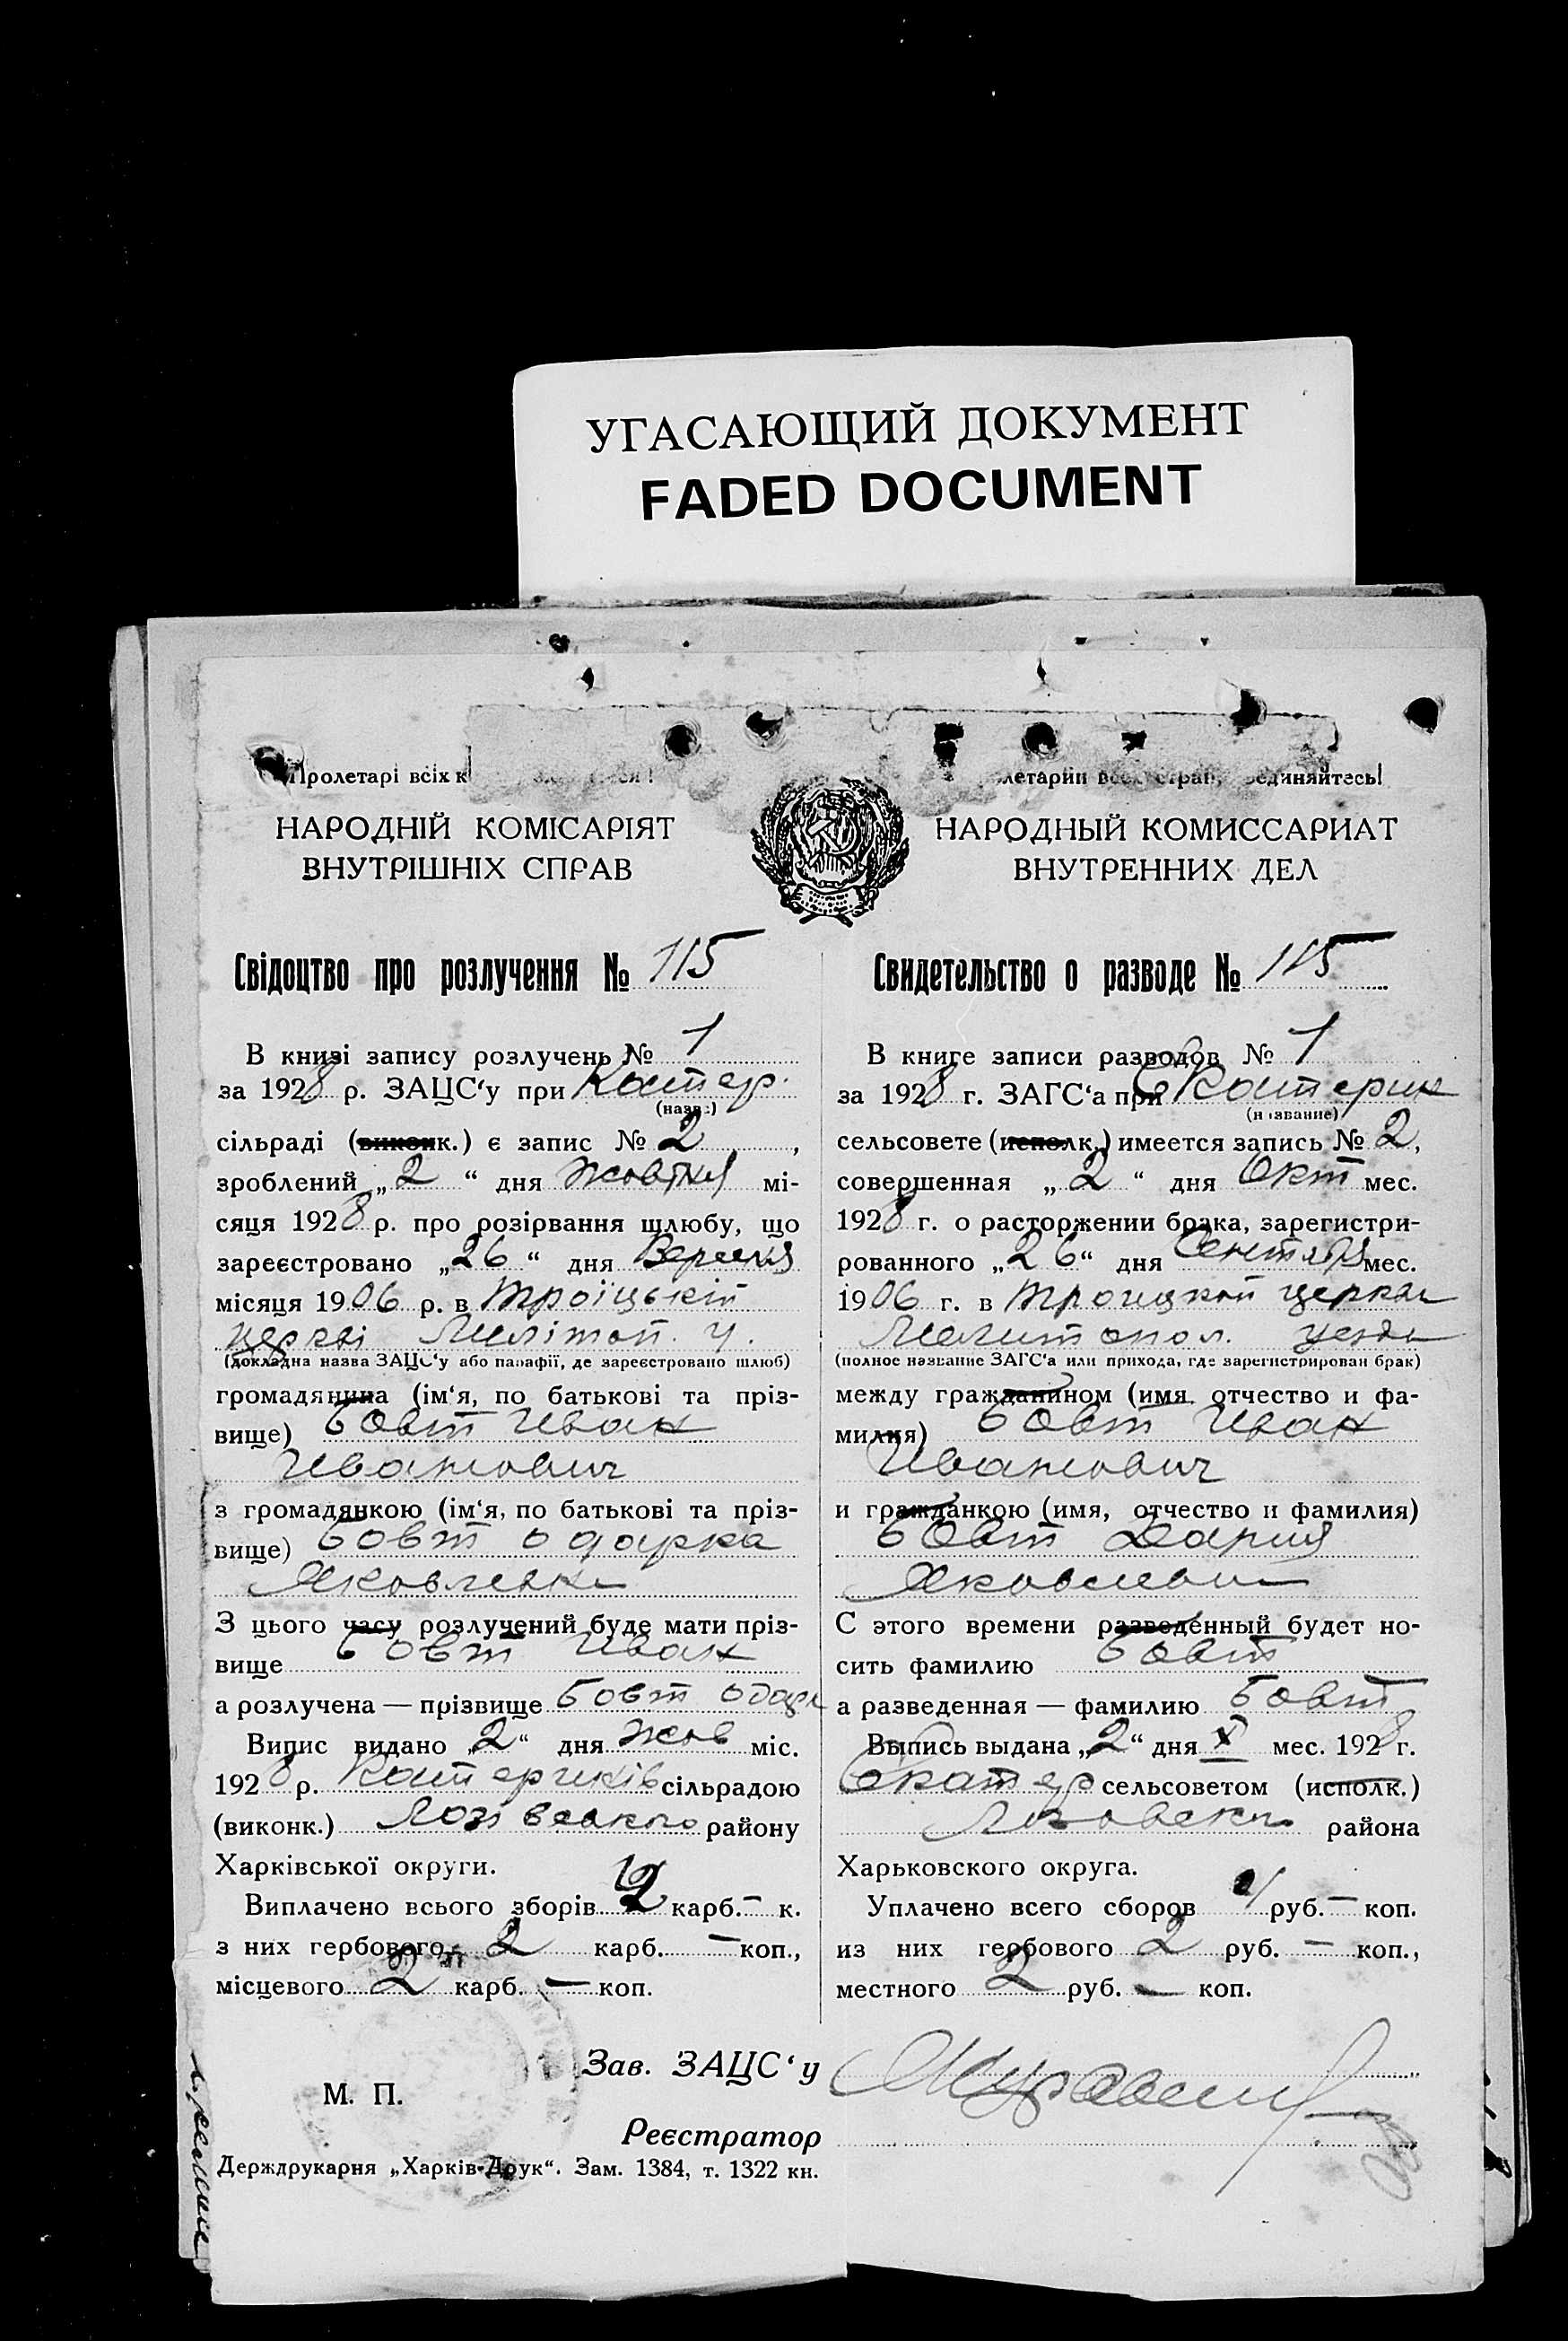 УГАСАЮЩИЙ ДОКУМЕНТ
FADED DOCUMENT
Пролетарі всіх к
НАРОДНІЙ КОМІСАРІЯТ
ВНУТРІШНІХ СПРАВ
Свідоцтво про розлучення № 115
В книзі запису розлучень № 1
за 1928 р. ЗАЦС‘у при Катер.
(назва)
сільраді (виконк.) є запис № 2,
зроблений „2“ дня жовтня мі-
сяця 1928 р. про розірвання шлюбу, що
зареєстровано „26“ дня Вересня
місяця 1906 р. в Троїцькій
церкві Меліт оп. у.
(докладна назва ЗАЦС‘у або парафії, де зареєстровано шлюб)
громадянина (ім‘я, по батькові та пріз-
вище) Бовт Иван
Иванович
з громадянкою (ім‘я, по батькові та пріз-
вище) Бовт Одарка
Яковлевна
З цього часу розлучений буде мати пріз-
вище Бовт Иван
а розлучена — прізвище Бовт Одарк
Випис видано „2“ дня жов міс.
1928 р. Катеринів сільрадою
(виконк.) Лозівського району
Харківської округи.
Виплачено всього зборів карб. — к.
з них гербового 2 карб. — коп.,
місцевого 2 карб. — коп.
М. П.
Зав. ЗАЦС‘у
Реєстратор
Держдрукарня „Харків-Друк“. Зам. 1384, т. 1322 кн.
летарии всех стран, соединяйтесь!
НАРОДНЫЙ КОМИССАРИАТ
ВНУТРЕННИХ ДЕЛ
Свидетельство о разводе № 115
В книге записи разводов № 1
за 1928 г. ЗАГС‘а при Екатерин
(название)
сельсовете (исполк.) имеется запись № 2,
совершенная „2“ дня Окт мес.
1928 г. о расторжении брака, зарегистри-
рованного „26“ дня Сентября мес.
1906 г. в Троицкой церкви
Мелитопол. уезда
(полное название ЗАГС‘а или прихода, где зарегистрирован брак)
между гражданином (имя отчество и фа-
милия) Бовт Иван
Иванович
и гражданкою (имя, отчество и фамилия)
Бовт Дария
Яковлевна
С этого времени разведенный будет но-
сить фамилию Бовт
а разведенная — фамилию Бовт
Выпись выдана „2“ дня X мес. 1928 г.
Екатер сельсоветом (исполк.)
Лозовского района
Харьковского округа.
Уплачено всего сборов руб. — коп.
из них гербового 2 руб. — коп.,
местного 2 руб. — коп.